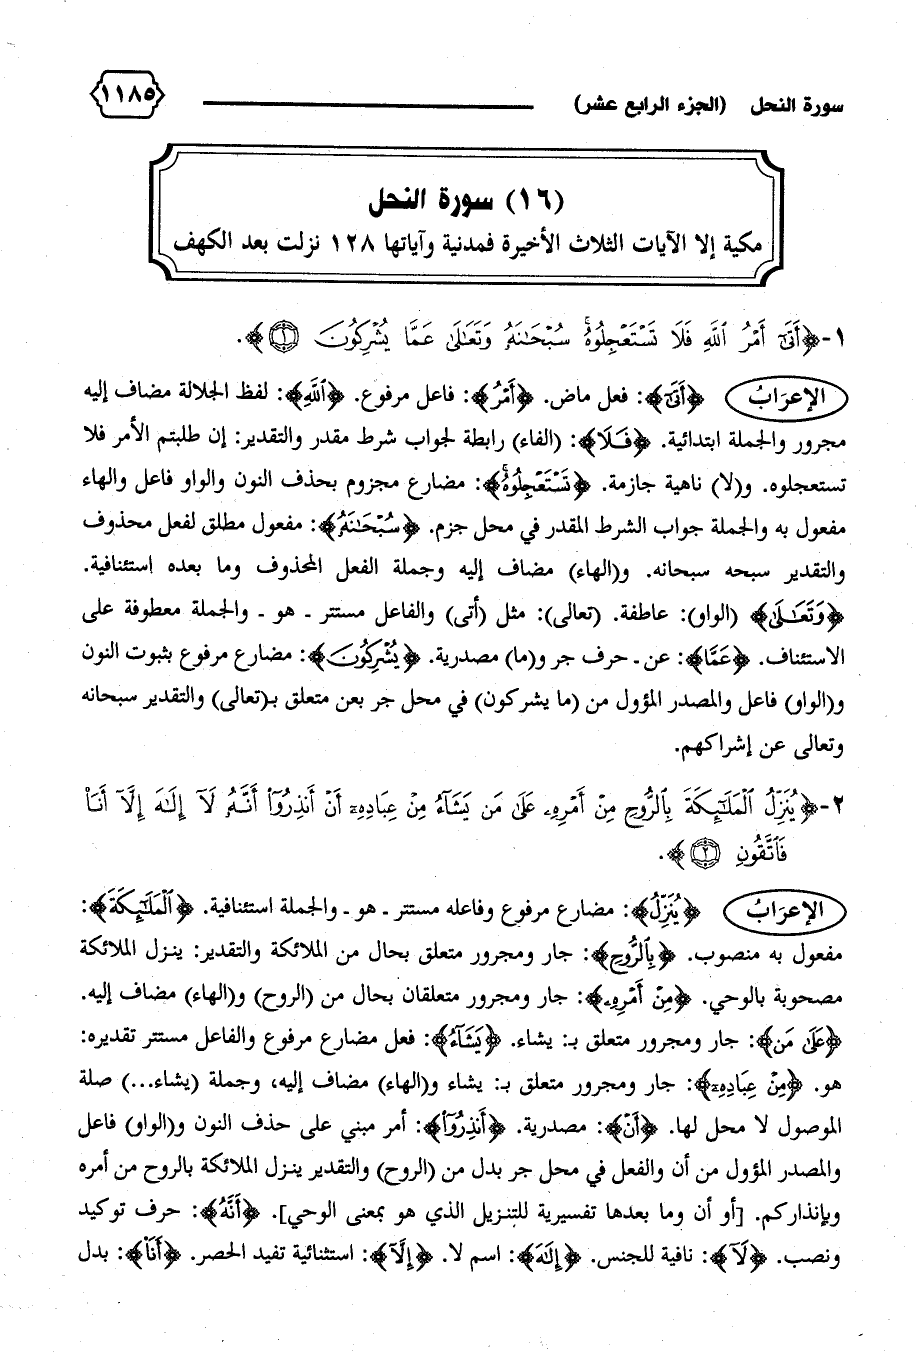 سورة النحل (الجزء الرابع عشر) ١١٨٥
(١٦) سورة النحل
مكية إلا الآيات الثلاث الأخيرة فمدنية وآياتها ١٢٨ نزلت بعد الكهف
١- ﴿أَتَىٰٓ أَمْرُ ٱللَّهِ فَلَا تَسْتَعْجِلُوهُۚ سُبْحَٰنَهُۥ وَتَعَٰلَىٰ عَمَّا يُشْرِكُونَ ۝١﴾.
الإعرَابُ ﴿أَتَىٰٓ﴾: فعل ماض. ﴿أَمْرُ﴾: فاعل مرفوع. ﴿ٱللَّهِ﴾: لفظ الجلالة مضاف إليه
مجرور والجملة ابتدائية. ﴿فَلَا﴾: (الفاء) رابطة لجواب شرط مقدر والتقدير: إن طلبتم الأمر فلا
تستعجلوه. و(لا) ناهية جازمة. ﴿تَسْتَعْجِلُوهُۚ﴾: مضارع مجزوم بحذف النون والواو فاعل والهاء
مفعول به والجملة جواب الشرط المقدر في محل جزم. ﴿سُبْحَٰنَهُۥ﴾: مفعول مطلق لفعل محذوف
والتقدير سبحه سبحانه. و(الهاء) مضاف إليه وجملة الفعل المحذوف وما بعده استئنافية.
﴿وَتَعَٰلَىٰ﴾ (الواو): عاطفة. (تعالى): مثل (أتى) والفاعل مستتر ـ هو ـ والجملة معطوفة على
الاستئناف. ﴿عَمَّا﴾: عن ـ حرف جر و(ما) مصدرية. ﴿يُشْرِكُونَ﴾: مضارع مرفوع بثبوت النون
و(الواو) فاعل والمصدر المؤول من (ما يشركون) في محل جر بعن متعلق بـ(تعالى) والتقدير سبحانه
وتعالى عن إشراكهم.
٢- ﴿يُنَزِّلُ ٱلْمَلَٰٓئِكَةَ بِٱلرُّوحِ مِنْ أَمْرِهِۦ عَلَىٰ مَن يَشَآءُ مِنْ عِبَادِهِۦٓ أَنْ أَنذِرُوٓا۟ أَنَّهُۥ لَآ إِلَٰهَ إِلَّآ أَنَا۠
فَٱتَّقُونِ ۝٢﴾.
الإعرَابُ ﴿يُنَزِّلُ﴾: مضارع مرفوع وفاعله مستتر ـ هو ـ والجملة استئنافية. ﴿ٱلْمَلَٰٓئِكَةَ﴾:
مفعول به منصوب. ﴿بِٱلرُّوحِ﴾: جار ومجرور متعلق بحال من الملائكة والتقدير: ينزل الملائكة
مصحوبة بالوحي. ﴿مِنْ أَمْرِهِۦ﴾: جار ومجرور متعلقان بحال من (الروح) و(الهاء) مضاف إليه.
﴿عَلَىٰ مَن﴾: جار ومجرور متعلق بـ: يشاء. ﴿يَشَآءُ﴾: فعل مضارع مرفوع والفاعل مستتر تقديره:
هو. ﴿مِنْ عِبَادِهِۦٓ﴾: جار ومجرور متعلق بـ: يشاء و(الهاء) مضاف إليه، وجملة (يشاء...) صلة
الموصول لا محل لها. ﴿أَنْ﴾: مصدرية. ﴿أَنذِرُوٓا۟﴾: أمر مبني على حذف النون و(الواو) فاعل
والمصدر المؤول من أن والفعل في محل جر بدل من (الروح) والتقدير ينزل الملائكة بالروح من أمره
وبإنذاركم. [أو أن وما بعدها تفسيرية للتنزيل الذي هو بمعنى الوحي]. ﴿أَنَّهُۥ﴾: حرف توكيد
ونصب. ﴿لَآ﴾: نافية للجنس. ﴿إِلَٰهَ﴾: اسم لا. ﴿إِلَّآ﴾: استثنائية تفيد الحصر. ﴿أَنَا۠﴾: بدل